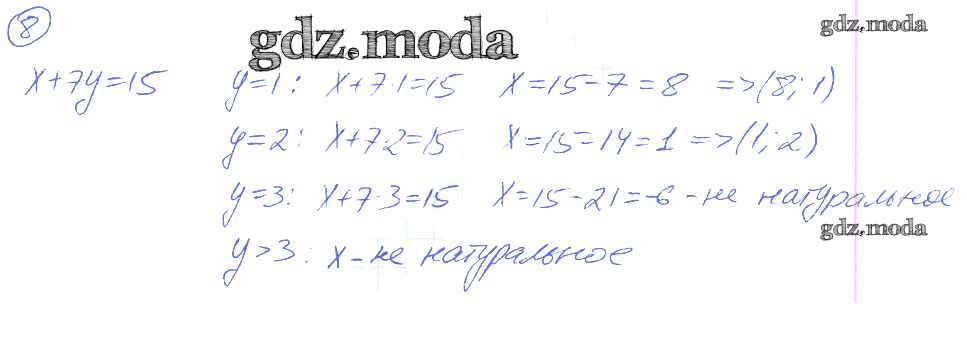 8
gdz.moda
gdz.moda
x+7y=15 y=1: x+7·1=15 x=15-7=8 =>(8; 1)
y=2: x+7·2=15 x=15=14=1 =>(1; 2)
y=3: x+7·3=15 x=15-21=-6 - не натуральное
gdz.moda
y>3: x - не натуральное